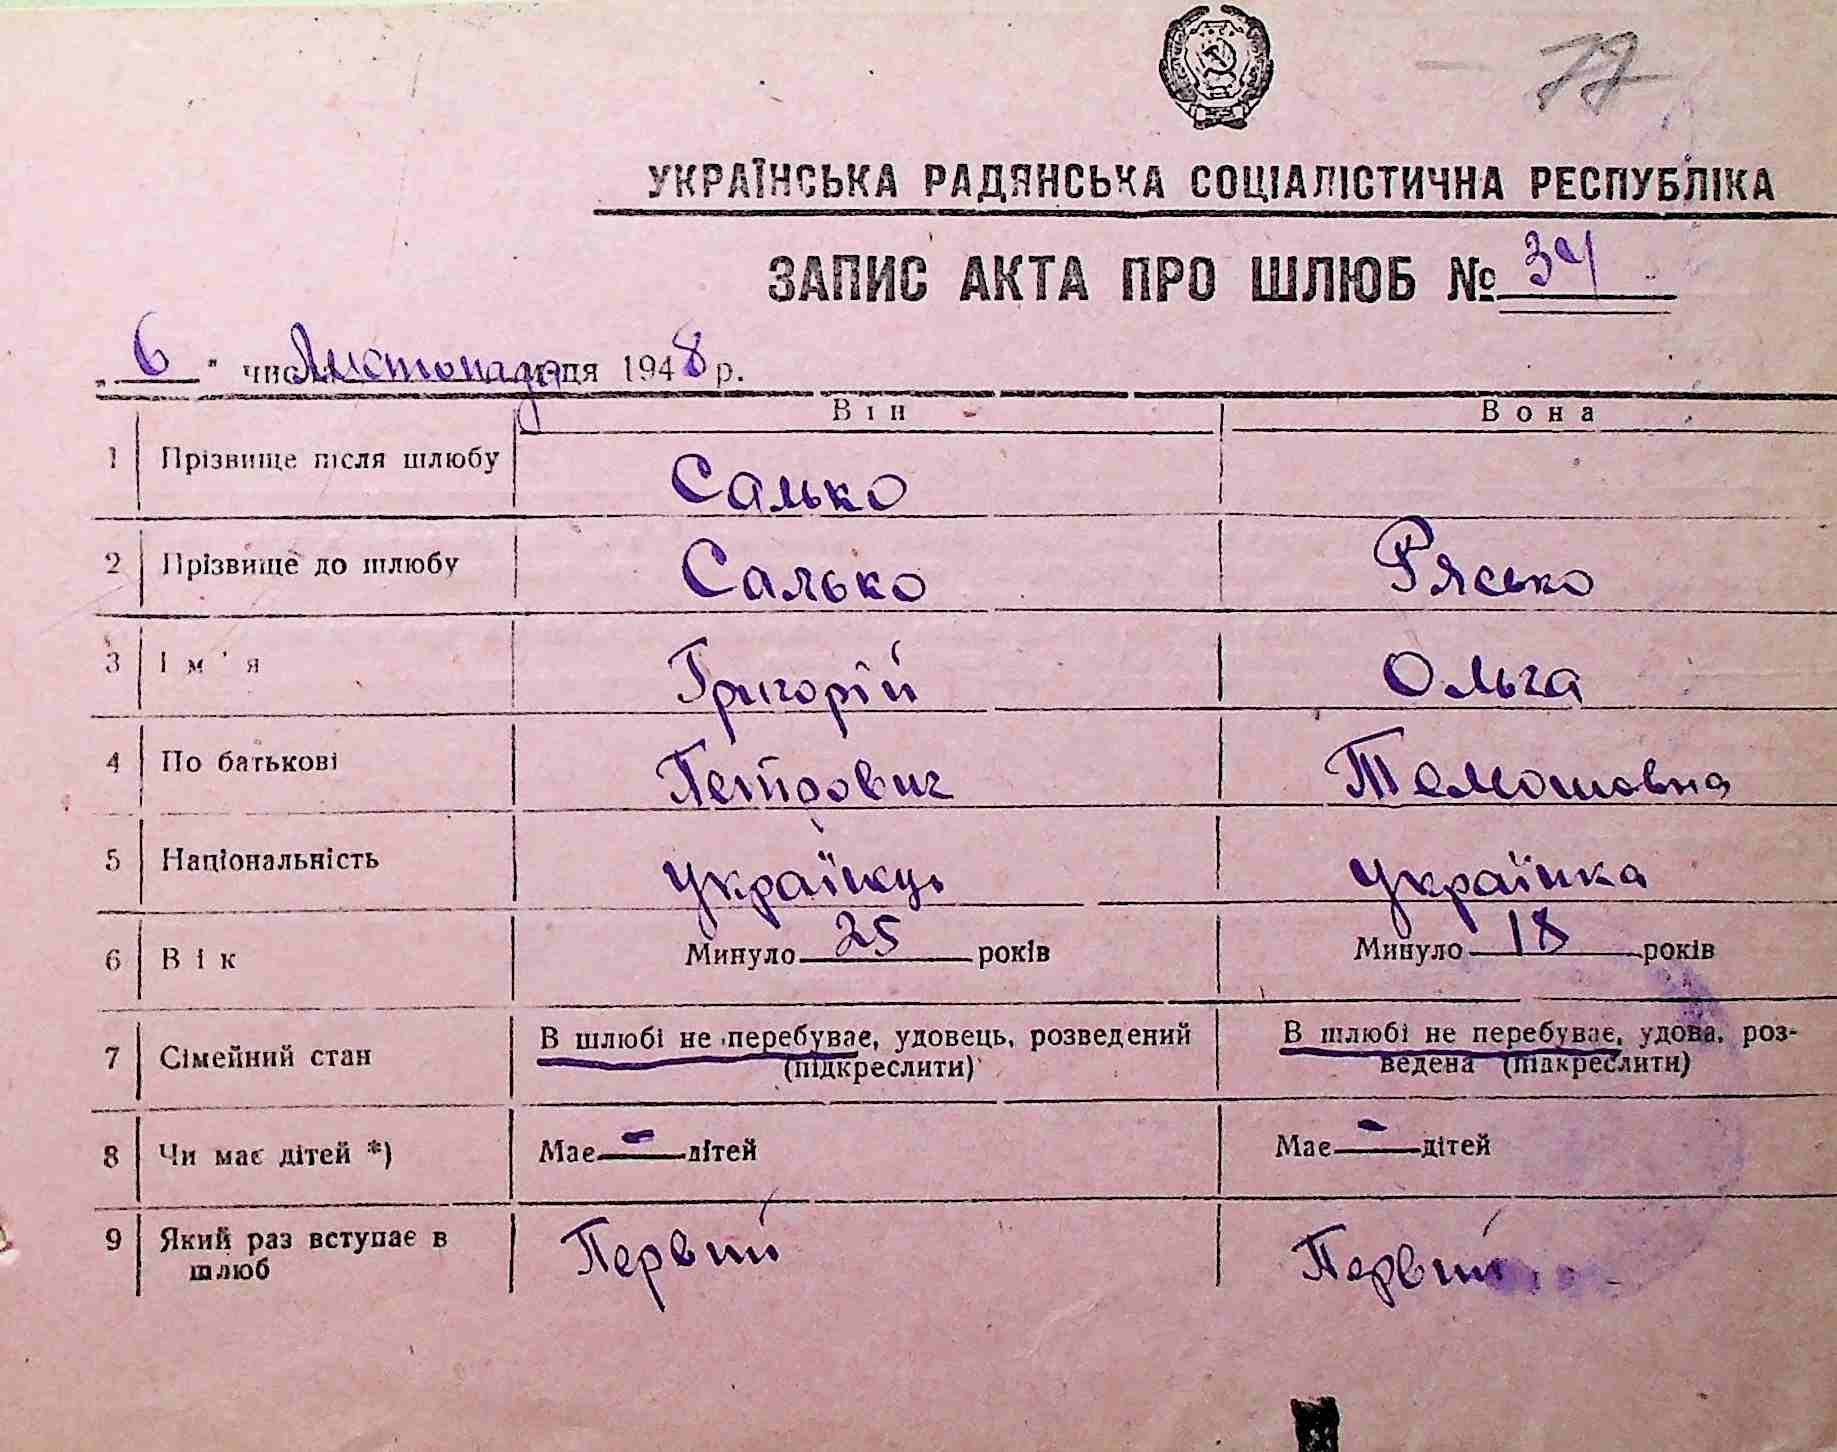 77
УКРАЇНСЬКА РАДЯНСЬКА СОЦІАЛІСТИЧНА РЕСПУБЛІКА
ЗАПИС АКТА ПРО ШЛЮБ № 34
„ 6 " числа Листопада м-ця 1948 р.
Він Вона
1 Прізвище після шлюбу Салько
2 Прізвище до шлюбу Салько Рясько
3 Ім'я Григорій Ольга
4 По батькові Петрович Темошовна
5 Національність Українець Українка
6 Вік Минуло 25 років Минуло 18 років
7 Сімейний стан В шлюбі не перебуває, удовець, розведений В шлюбі не перебуває, удова, роз-
(підкреслити) ведена (підкреслити)
8 Чи має дітей *) Має - дітей Має - дітей
9 Який раз вступає в Первий Первий
шлюб